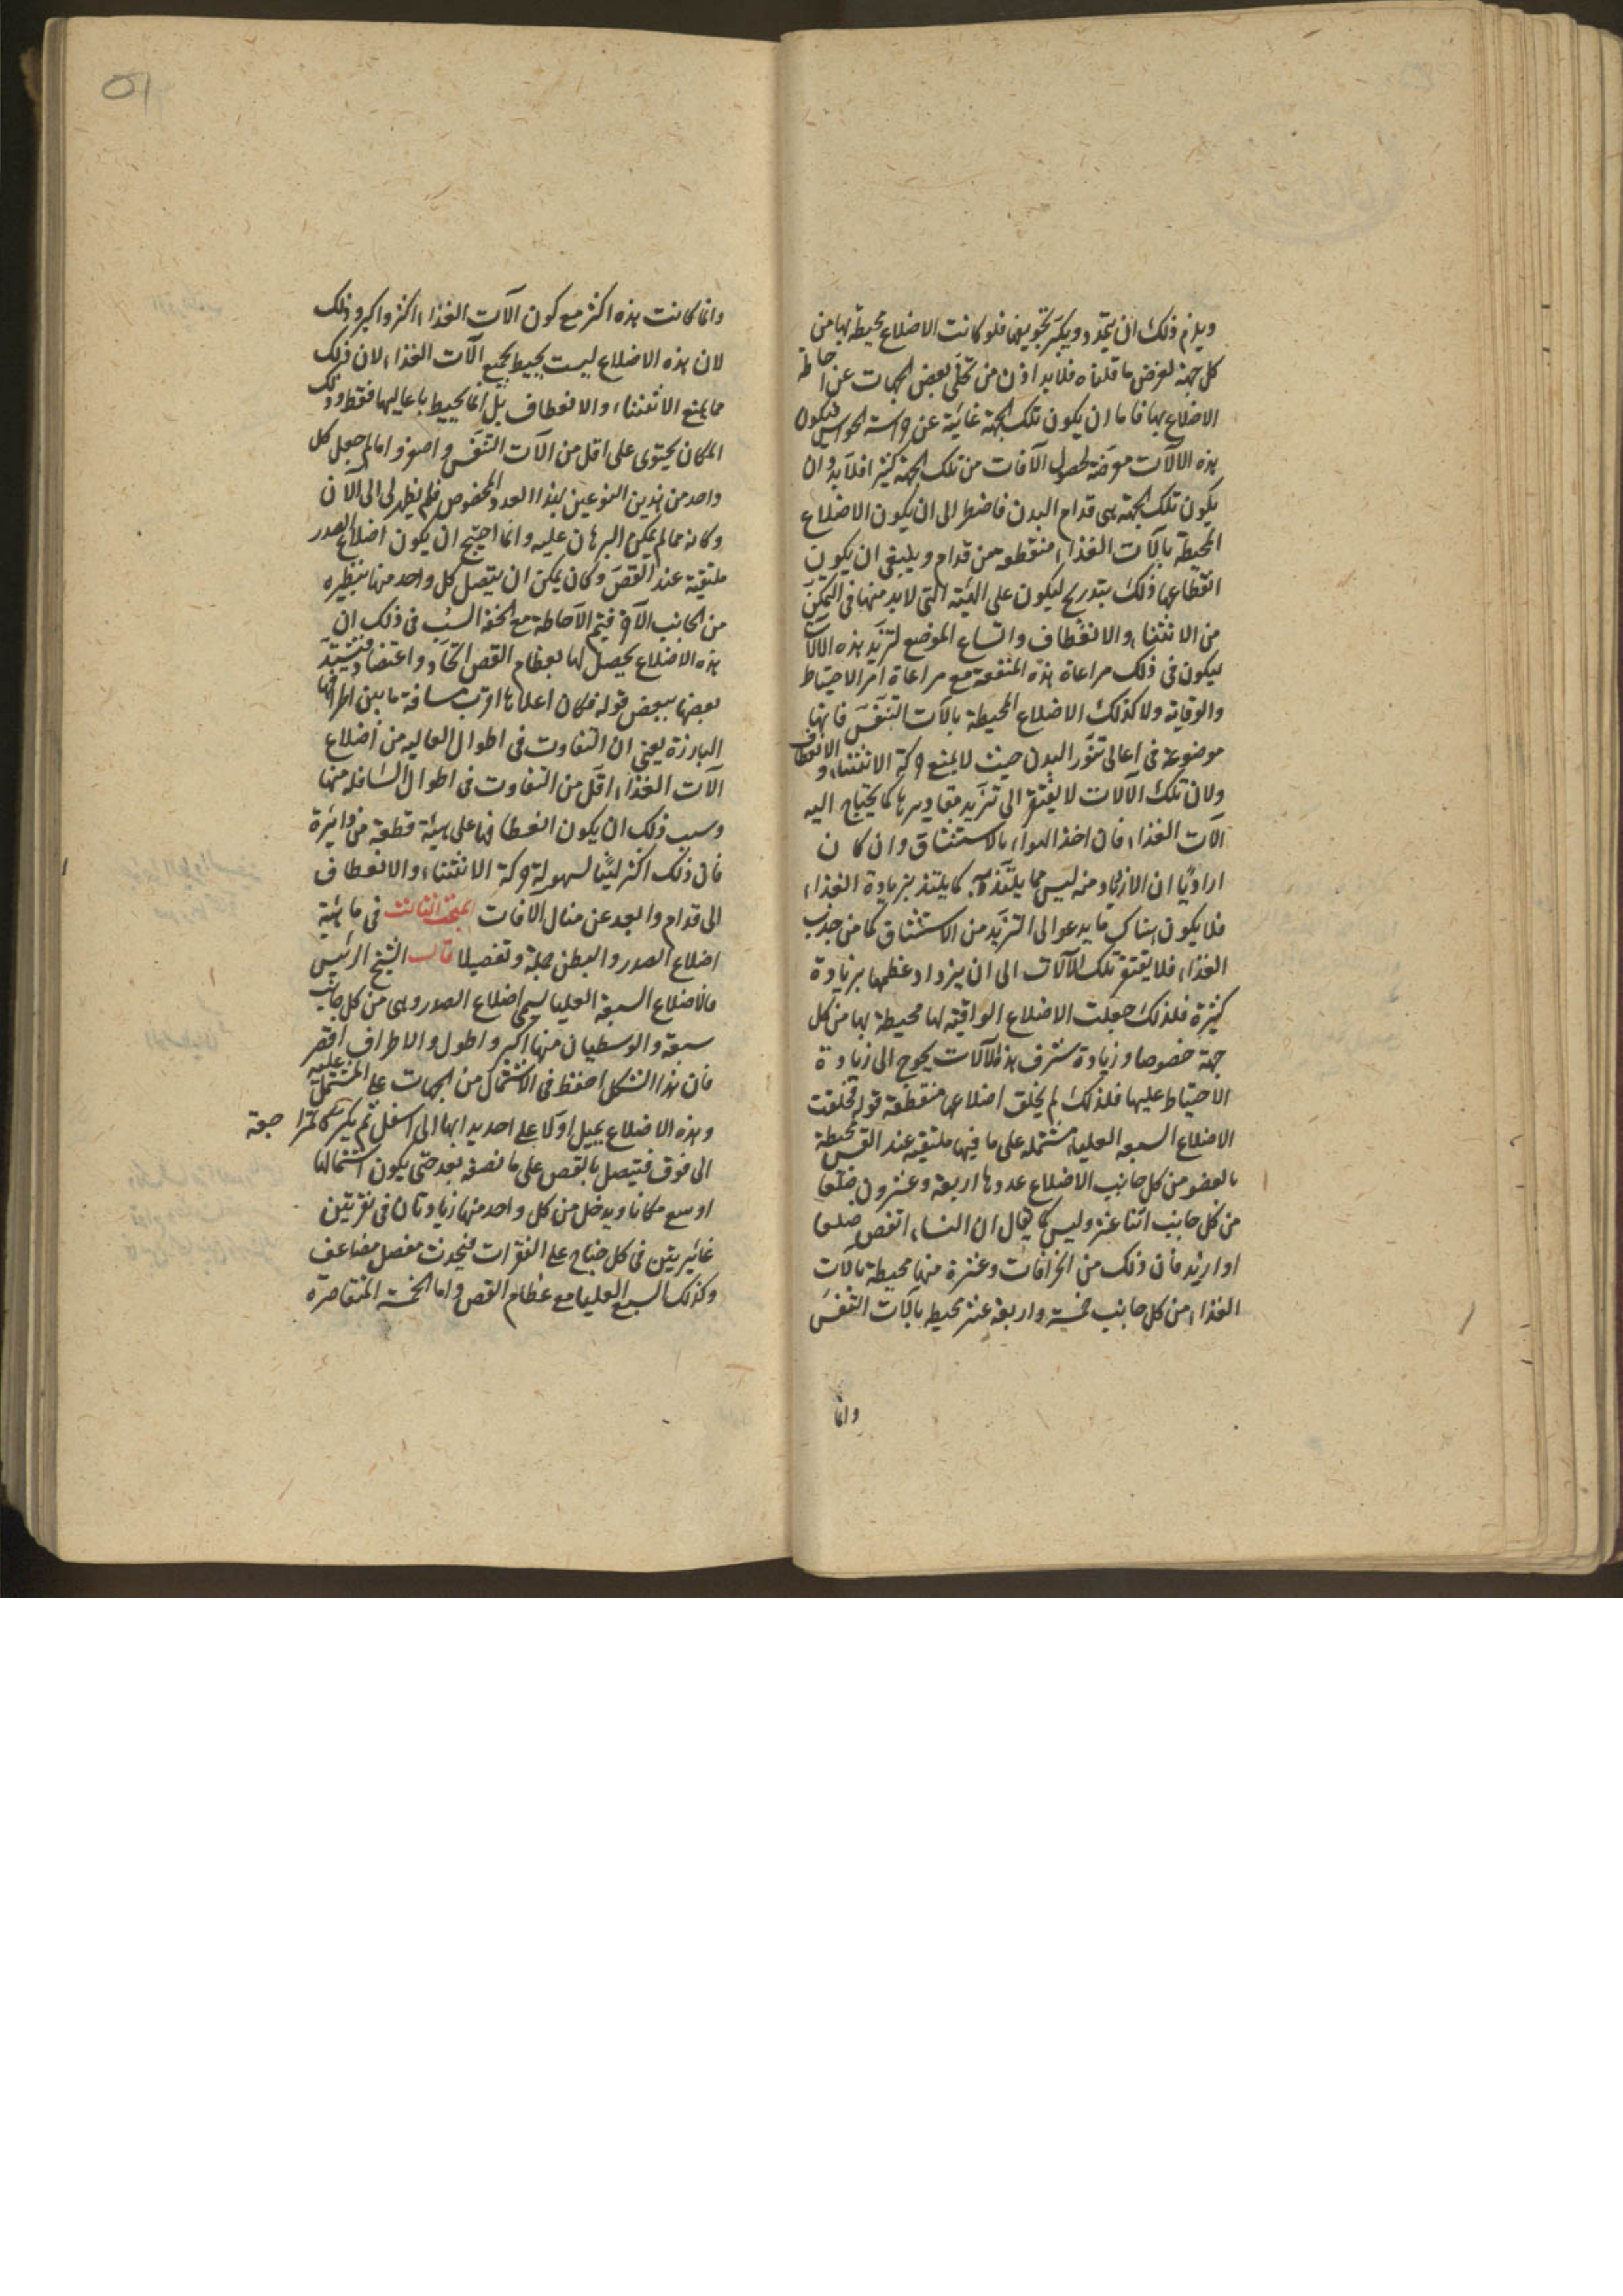 ويلزم ذلك ان يتمدد ويكبر تجويفها فلو كانت الاضلاع محيطة بها من
كل جهة لعرض ما قلناه فلا بد اذن من تخلى بعض الجهات عن احاطة
الاضلاع بها فاما ان يكون تلك الجهة غائبة عن حراسة الحواس فيكون
هذه الآلات معرضة لحصول الآفات من تلك الجهة كثيرا فلا بد وان
يكون تلك الجهة هى قدام البدن فاضطر الى ان يكون الاضلاع
المحيطة بآلات الغذاء منقطعه من قدام وينبغى ان يكون
انقطاعها ذلك بتدريج ليكون على الهيئة التى لا بد منها فى التمكن
من الانثناء والانعطاف واتساع الموضع لتزيد هذه الآلات
ليكون فى ذلك مراعاة هذه المنفعة مع مراعاة امر الاحتياط
والوقاية ولا كذلك الاضلاع المحيطة بالآت التنفس فانها
موضوعة فى اعالى تنور البدن حيث لا يمنع حركة الانثناء والانعطاف
ولان تلك الآلات لا يفتقر الى تزيد مقاديرها كما يحتاج اليه
آلات الغذاء فان اخذ الهواء بالاستنشاق وان كان
اراديا ان الازدياد منه ليس مما يلتذ به كما يلتذ بزيادة الغذاء
فلا يكون هناك ما يدعو الى التزيد من الاستنشاق كما من جذب
الغذاء فلا يفتقر تلك الآلات الى ان يزداد عظمها بزيادة
كثيرة فلذلك جعلت الاضلاع الواقية لها محيطة بها من كل
جهة خصوصا وزيادة شرف هذه الآلات يحوج الى زيادة
الاحتياط عليها فلذلك لم يخلق اضلاعها منقطعة قوله فخلقت
الاضلاع السبعه العليا مشتمله على ما فيها ملتقيه عند القص محيطة
بالعضو من كل جانب الاضلاع عددها اربعة وعشرون ضلعا
من كل جانب اثنا عشر وليس كما يقال ان النساء انقص ضلعا
او ازيد فان ذلك من الخرافات وعشرة منها محيطة بآلات
الغذاء من كل جانب خمسة واربعة عشر محيط بآلات التنفس
وانما
وانما كانت هذه اكثر مع كون آلات الغذاء اكثر واكبر وذلك
لان هذه الاضلاع ليست يحيط بجميع آلات الغذاء لان ذلك
مما يمنع الانثناء والانعطاف بل انما يحيط باعاليها فقط وذلك
المكان يحتوى على اقل من آلات التنفس واصغر واما لم جعل كل
واحد من هذين النوعين بهذا العدد المخصوص فلم يظهر لى الى الآن
وكانه مما لم يمكن البرهان عليه وانما احتيج ان يكون اضلاع الصدر
ملتقية عند القص وكان يمكن ان يتصل كل واحد منها بنظيره
من الجانب الآخر فيتم الاحاطة مع الخفة السبب فى ذلك ان
هذه الاضلاع يحصل لها بعظام القص اتحاد واعتضاد فيتشبث
بعضها ببعض قوله فكان اعلاها اقرب مسافة ما بين اطرافها
البارزة يعنى ان التفاوت فى اطوال العاليه من اضلاع
آلات الغذاء اقل من التفاوت فى اطوال السافله منها
وسبب ذلك ان يكون انعطافها على هيئة قطعة من دائرة
فان ذلك اكثر لينا لسهولة حركة الانثناء والانعطاف
الى قدام والبعد عن منال الآفات المبحث الثالث فى ماهية
اضلاع الصدر والبطن جملة وتفصيلا قال الشيخ الرئيس
فالاضلاع السبعة العليا يسمى اضلاع الصدر وهى من كل جانب
سبعة والوسطيان منها اكبر واطول والاطراف اقصر
فان هذا الشكل احفظ فى الاشتمال من الجهات على المشتمل عليه
وهذه الاضلاع يميل اولا على احديدابها الى اسفل ثم يكر كالمتراجعة
الى فوق فيتصل بالقص على ما نصفه بعد حتى يكون اشتمالها
اوسع مكانا ويدخل من كل واحد منها زيادتان فى نقرتين
غائرتين فى كل جناح على الفقرات فيحدث مفصل مضاعف
وكذلك السبع العليا مع عظام القص واما الخمسة المتقاصرة